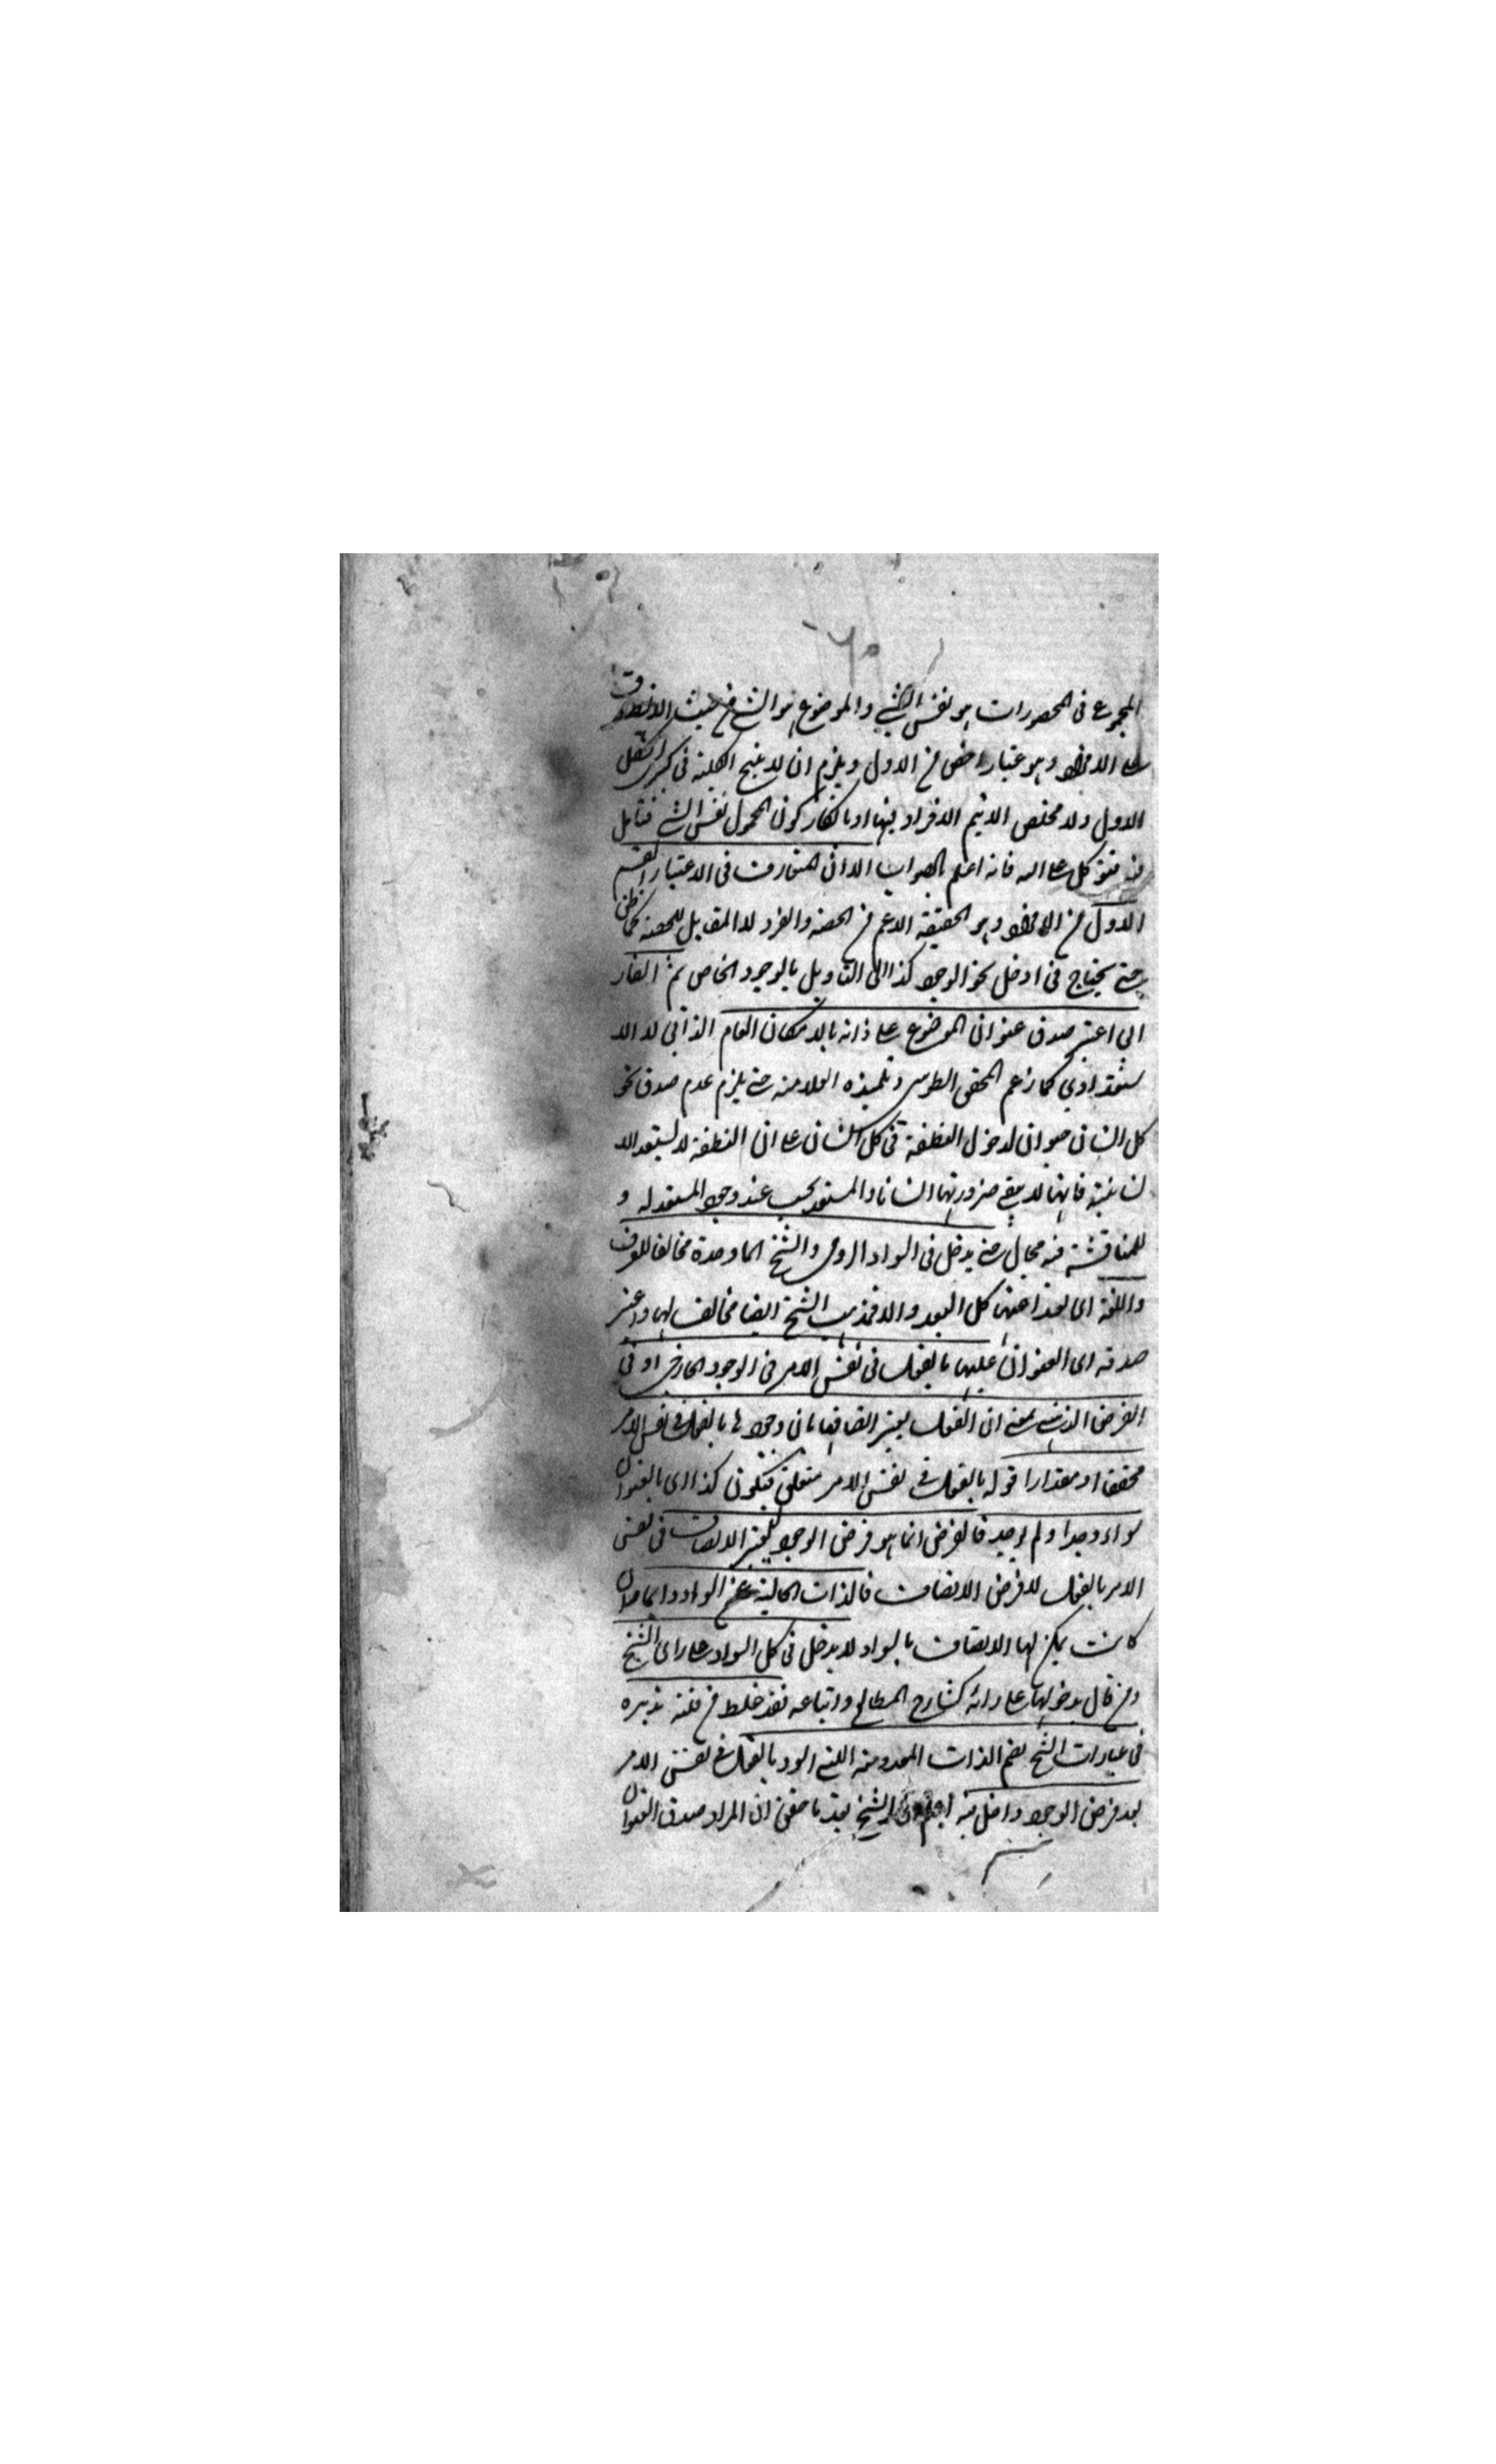 المجموع فى المحصورات هو نفس الشئ والموضوع هو الشئ من حيث الانطباق
على الافراد وهو اعتبار اخص من الاول ويلزم ان لا ينتج الكلية فى كبرى الشكل
الاول ولا مخلص الا بتيم الافراد فيها او بانكار كون المحمول نفس الشئ فتامل
فيه فوق كل على اليه فانه اعلم بالصواب الا ان المتعارف فى الاعتبار القسم
الاول من الافراد وهو الحقيقة الاعم من الحصة والفرد لا المقابل للحصة كما ظن
حتى يحتاج فى ادخل نحو الوجود كذا الى التاويل بالوجود الخاص ثم الفار
ابى اعتبر صدق عنوان الموضوع على ذاته بالامكان العام الذاتى لا الا
ستعدادى كما زعم المحقق الطوسى وتلميذه العلامة حتى يلزم عدم صدق نحو
كل انسان حيوان لدخول النطفة فى كل انسان على ان النطفة لا يستعد الا
نسانية فانها لا يبقى ضرورتها انسانا والمستعد يجب عند وجود المستعد له و
للمناقشة فيه مجال حتى يدخل فى السواد الرومى والشيخ لما وجده مخالفا للعرف
واللغة اى بعد اعنهما كل البعد والا فمذهب الشيخ ايضا مخالف لهما واعتبر
صدقه اى العنوان عليها بالفعل فى نفس الامر فى الوجود الخارجى او فى
الفرض الذهنى بمعنى ان العقل يعتبر اتصافها بان وجودها بالفعل فى نفس الامر
محققا او مقدارا قوله بالفعل فى نفس الامر متعلق فتكون كذا اى بالعنوان
سواء وجد او لم يوجد فالفرض انما هو فرض الوجود ليعتبر الاتصاف فى نفس
الامر بالفعل لا فرض الاتصاف فالذات الخالية عن السواد دائما وان
كانت يمكن لها الاتصاف بالسواد لا يدخل فى كل اسود على راى الشيخ
ومن قال بدخولها على رائه كشارح المطالع واتباعه فقد غلط من قلة تدبره
فى عبارات الشيخ نعم الذات المعدومة التى اسود بالفعل فى نفس الامر
بعد فرض الوجود داخل فيه اعلم ان الشيخ بعد ما حقق ان المراد صدق العنوان